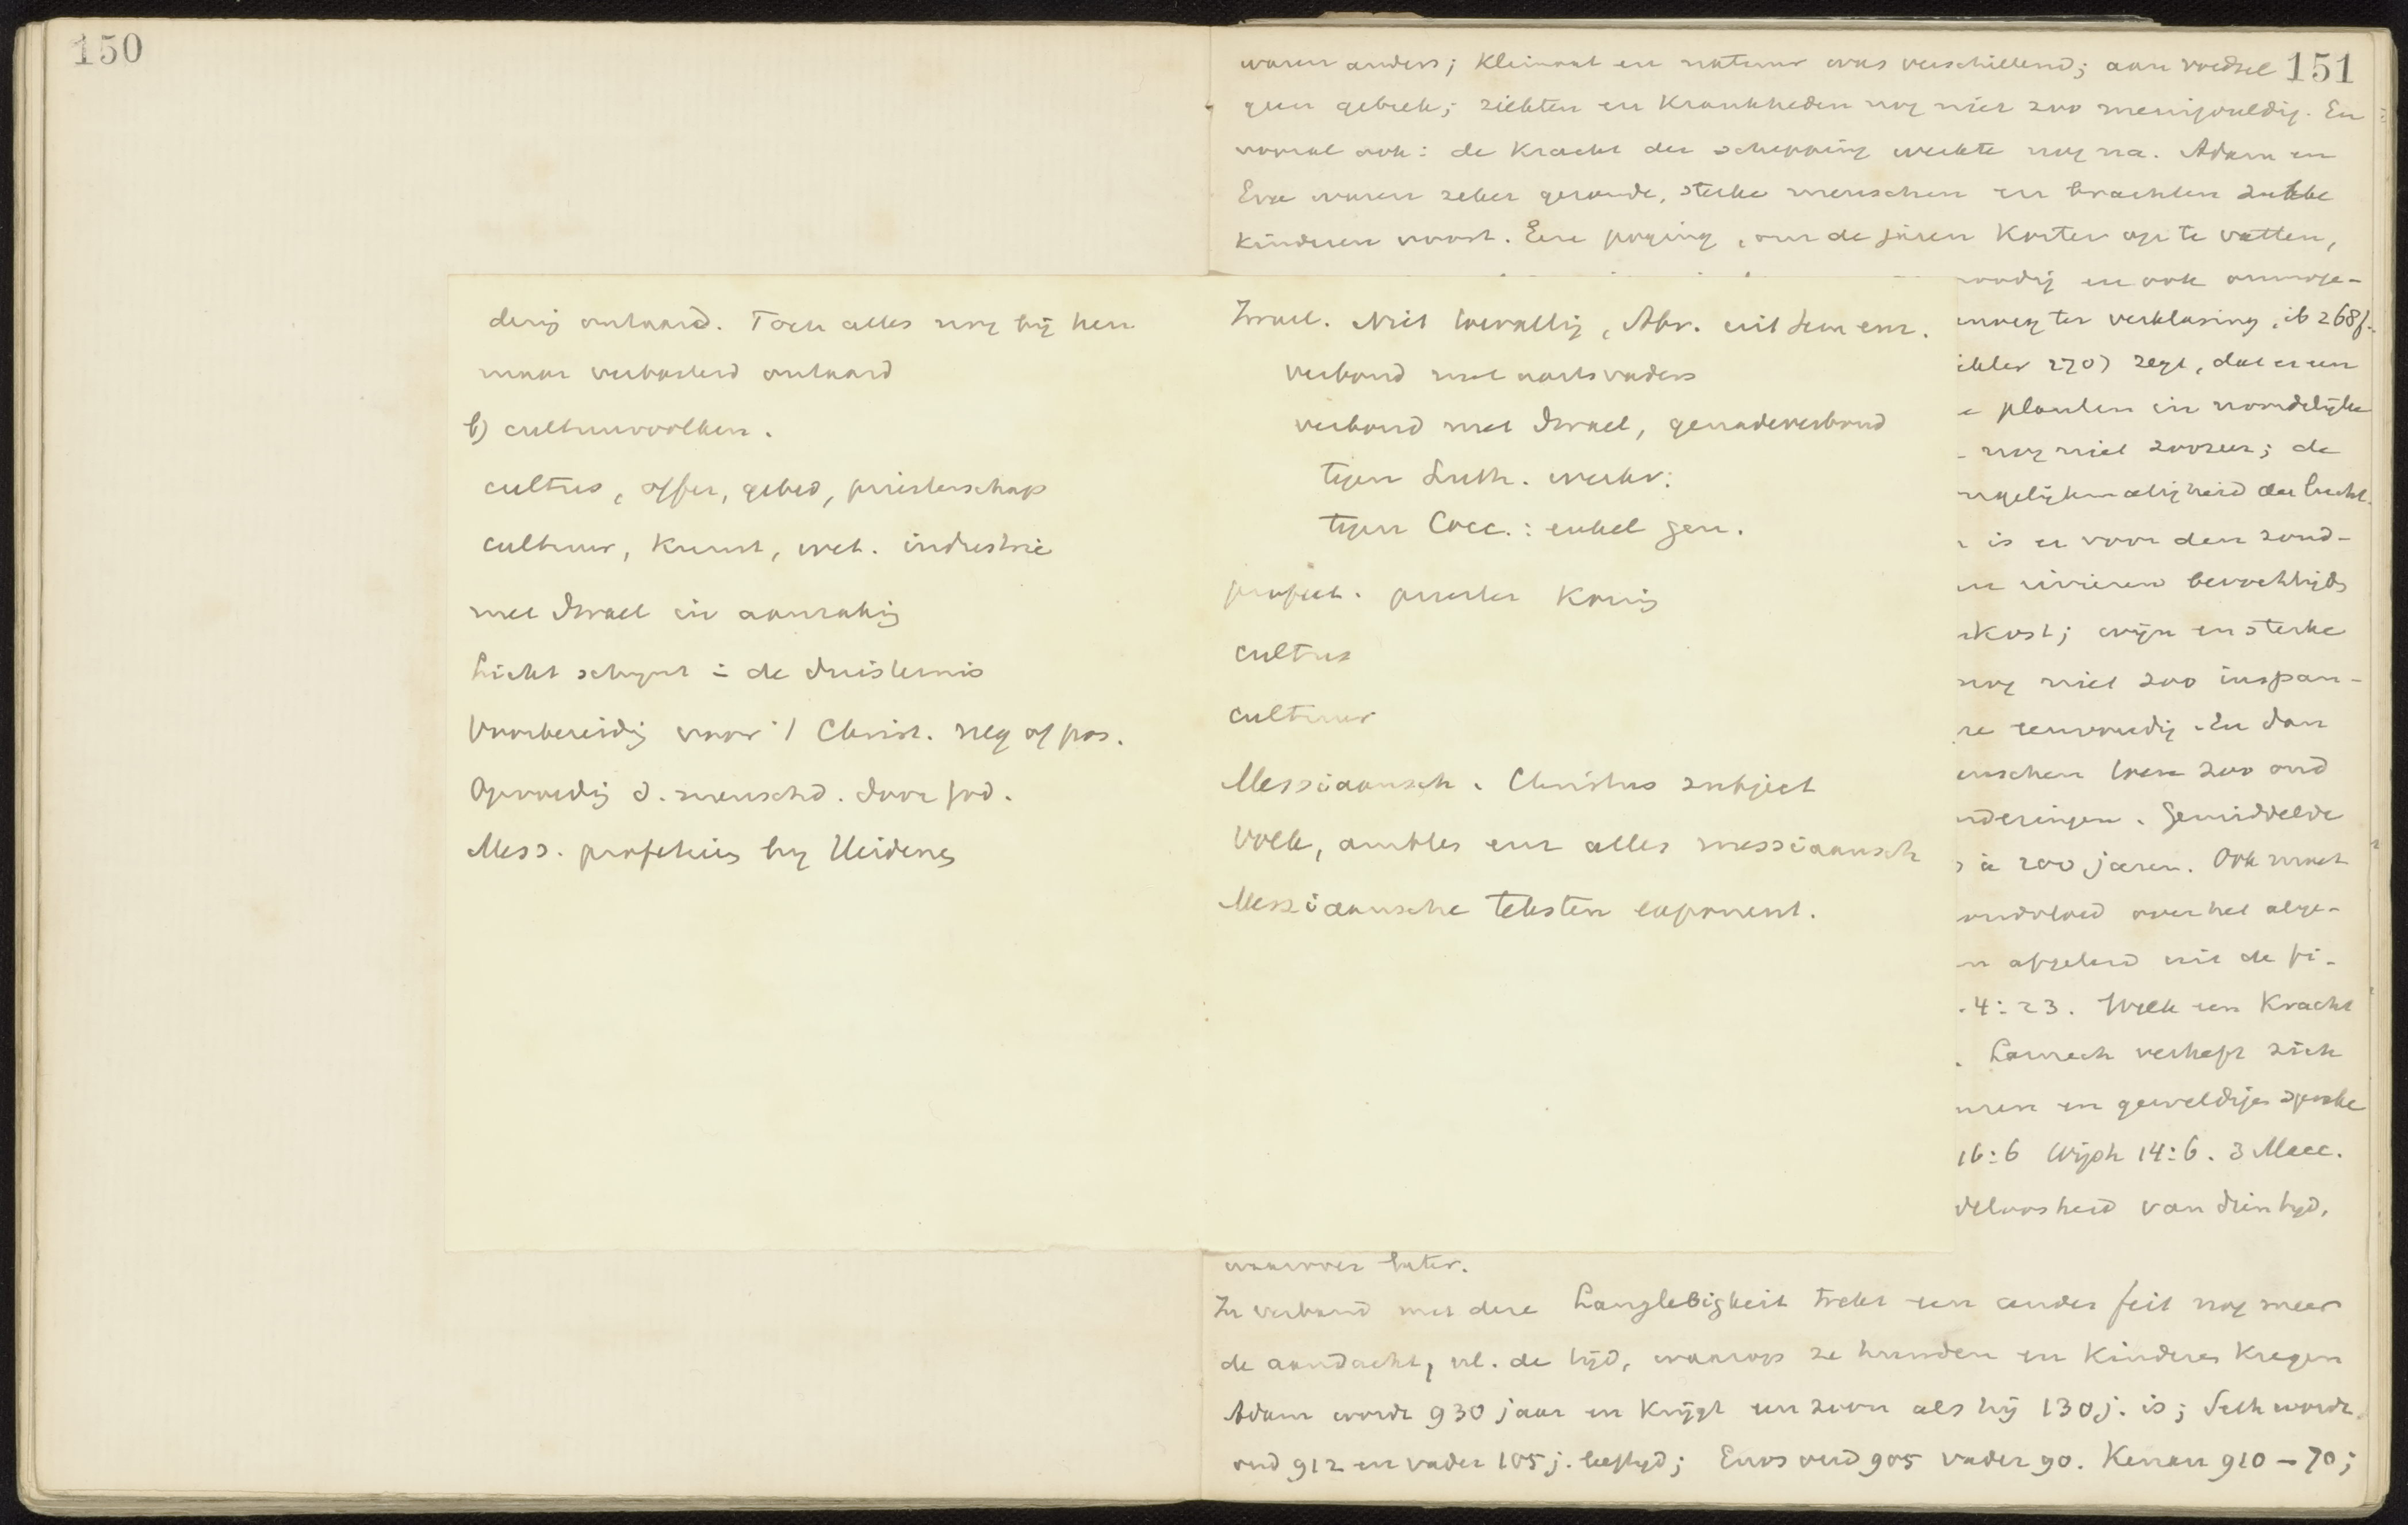 150
dering ontaard. Toch alles nog bij hen
maar verbasterd ontaard
b) cultuurvolken.
cultus, offer, gebed, priesterschap
cultuur, kunst, wet. industrie
met Israel in aanraking
Licht schynt in de duisternis
Voorbereiding voor 't Christ. neg of pos.
Opvoeding d. menschd. door God.
Mess. profetieën by Heidenen
Israel. Niet toevallig, Abr. uit Sem enz.
verbond met aartsvaders
verbond met Israel, genadeverbond
tegen Luth. werkv:
tegen Cocc.: enkel gen.
profeet. priester Koning
cultus
cultuur
Messiaansch. Christus subject
Volk, ambten enz alles messiaansch
Messiaansche teksten exponent.
151
waren anders; Klimaat en natuur was verschillend; aan voedsel
geen gebrek; ziekten en Krankheden nog niet zoo menigvuldig. En
vooral ook: de Kracht der schepping werkte nog na. Adam en
Eva waren zeker gezonde, sterke menschen en brachten zulke
Kinderen voort. Eene poging, om de jaren Korter op te vatten,
noodig en ook onmoge-
ter verklaring, ib 268f.
270) zegt, dat er een
planten in noordelijke
nog niet zoozeer; de
ngelijkmatigheid der lucht.
is er voor den zond-
rivieren bevochtigd
kost; wijn en sterke
nog niet zoo inspan-
re eenvoudig. En dan
enschen zoo oud
nderingen. Gemiddelde
à 200 jaren. Ook moet
zondvloed over het alge-
n afgeleid uit de fi-
4:23. Welk een Kracht
. Lamech verheft zich
uren en geweldige sprake
16:6 Wijsh 14:6. 3 Macc.
deloosheid van dien tyd,
waarover later.
In verband met deze Langlebigkeit trekt een ander feit nog meer
de aandacht, nl. de tijd, waarop ze huwden en Kinderen Kregen
Adam wordt 930 jaar en Krijgt een zoon als hij 130 j. is; Seth wordt
oud 912 en vader 105 j. leeftyd; Enos oud 905 vader 90. Kenan 910 – 70;